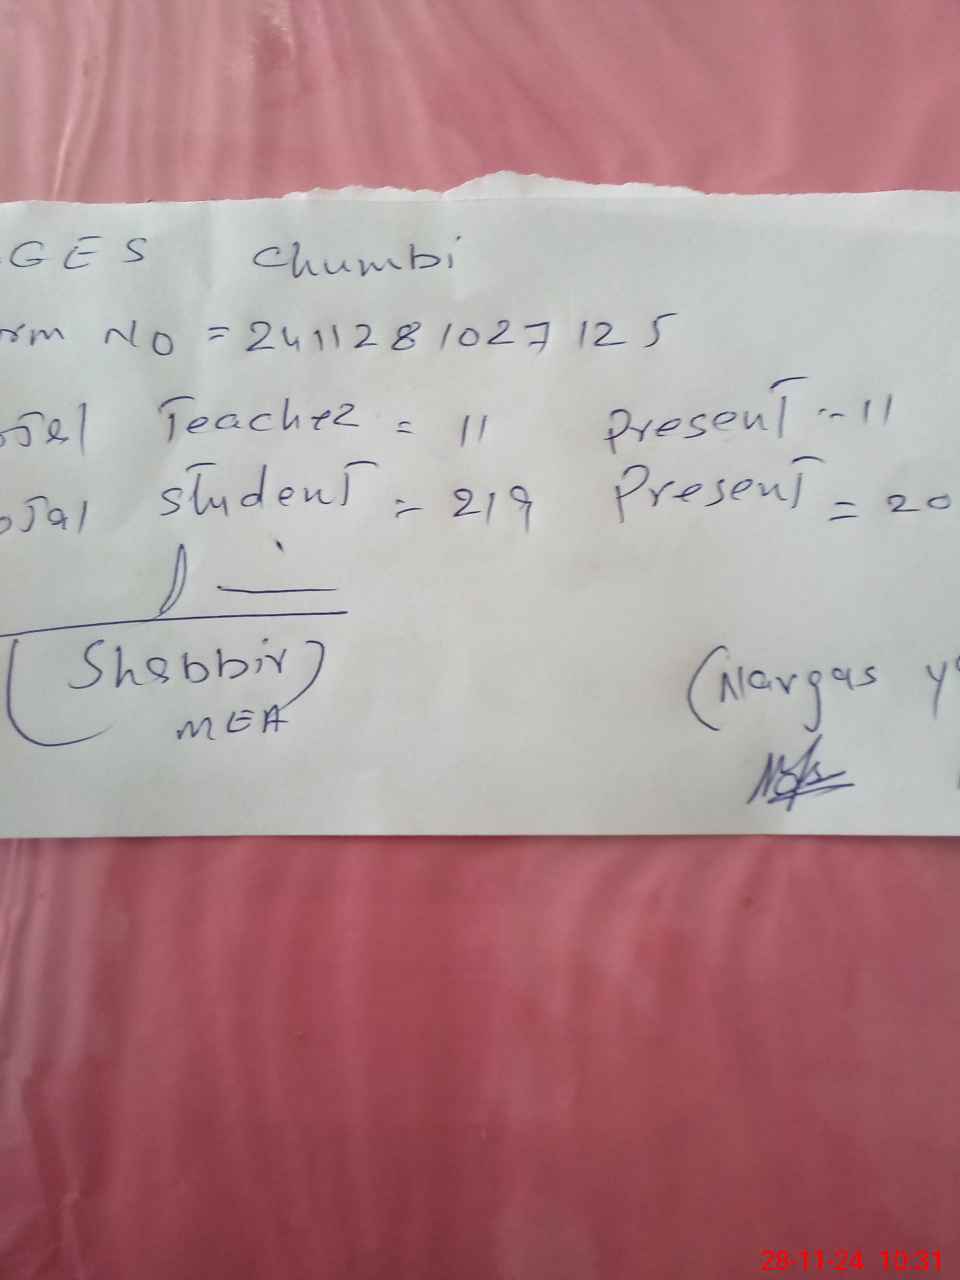 GES Chumbi
orm No = 2411281027125
otal Teacher = 11 Present - 11
otal student = 219 Present = 20
(Shabbir)
MEA
(Nargas y
28-11-24 10:31